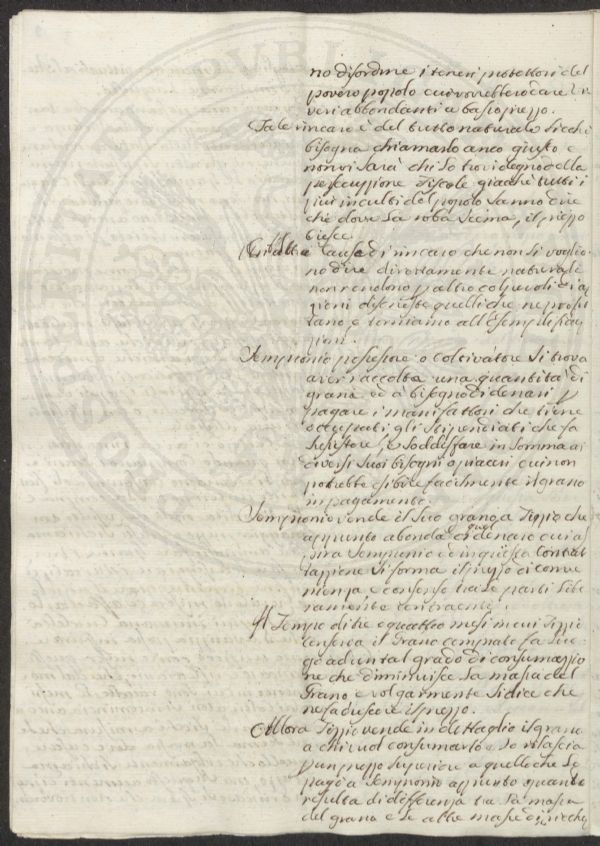 no disordine i teneri protettori del
povero popolo cui vorrebbero dare i vi
veri abbondanti a basso prezzo.
Tale rincaro è del tutto naturale sicchè
bisogna chiamarlo anco giusto e
non vi sarà chi lo trovi degno della
persecuzione Fiscale giacchè tutti i
più inculti del popolo sanno dire
che dove la roba scema, il prezzo
cresce.
cause di rincaro che non si voglio
no dire direttamente naturali
non rendono p altro colpevoli di
azioni disoneste quelli che ne profit
tano, e torniamo all'Esemplificaz
zioni.
Sempronio possessore o coltivatore si trova
aver raccolta una quantità di
grano ed à bisogno di denari p
pagare i manifattori che tiene
occupati gli stipendiati che fa
sussistere, e soddisfare in somma ai
diversi suoi bisogni o piaceri cui non
potrebbe esibire facilmente il grano
in pagamento.
Sempronio vende il suo grano a Tizzio che
appunto abonda di quel denaro cui a
spira Sempronio e in questa contrat
tazzione si forma il prezzo di conve
nienza, e consenso tra le parti libe
ramente contraenti.
A Tempo di tre o quattro mesi in cui Tizzio
conserva il Grano comprato fa luo
go ad un tal grado di consumazzio
ne che diminuisce la massa del
Grano e volgarmente si dice che
ne fa crescere il prezzo.
Allora Tizzio vende in dettaglio il grano
a chi vuol consumarlo e lo rilascia
p un prezzo superiore a quello che lo
pagò a Sempronio appunto quanto
resulta di differenza tra la massa
del grano e le altre masse di ricchez